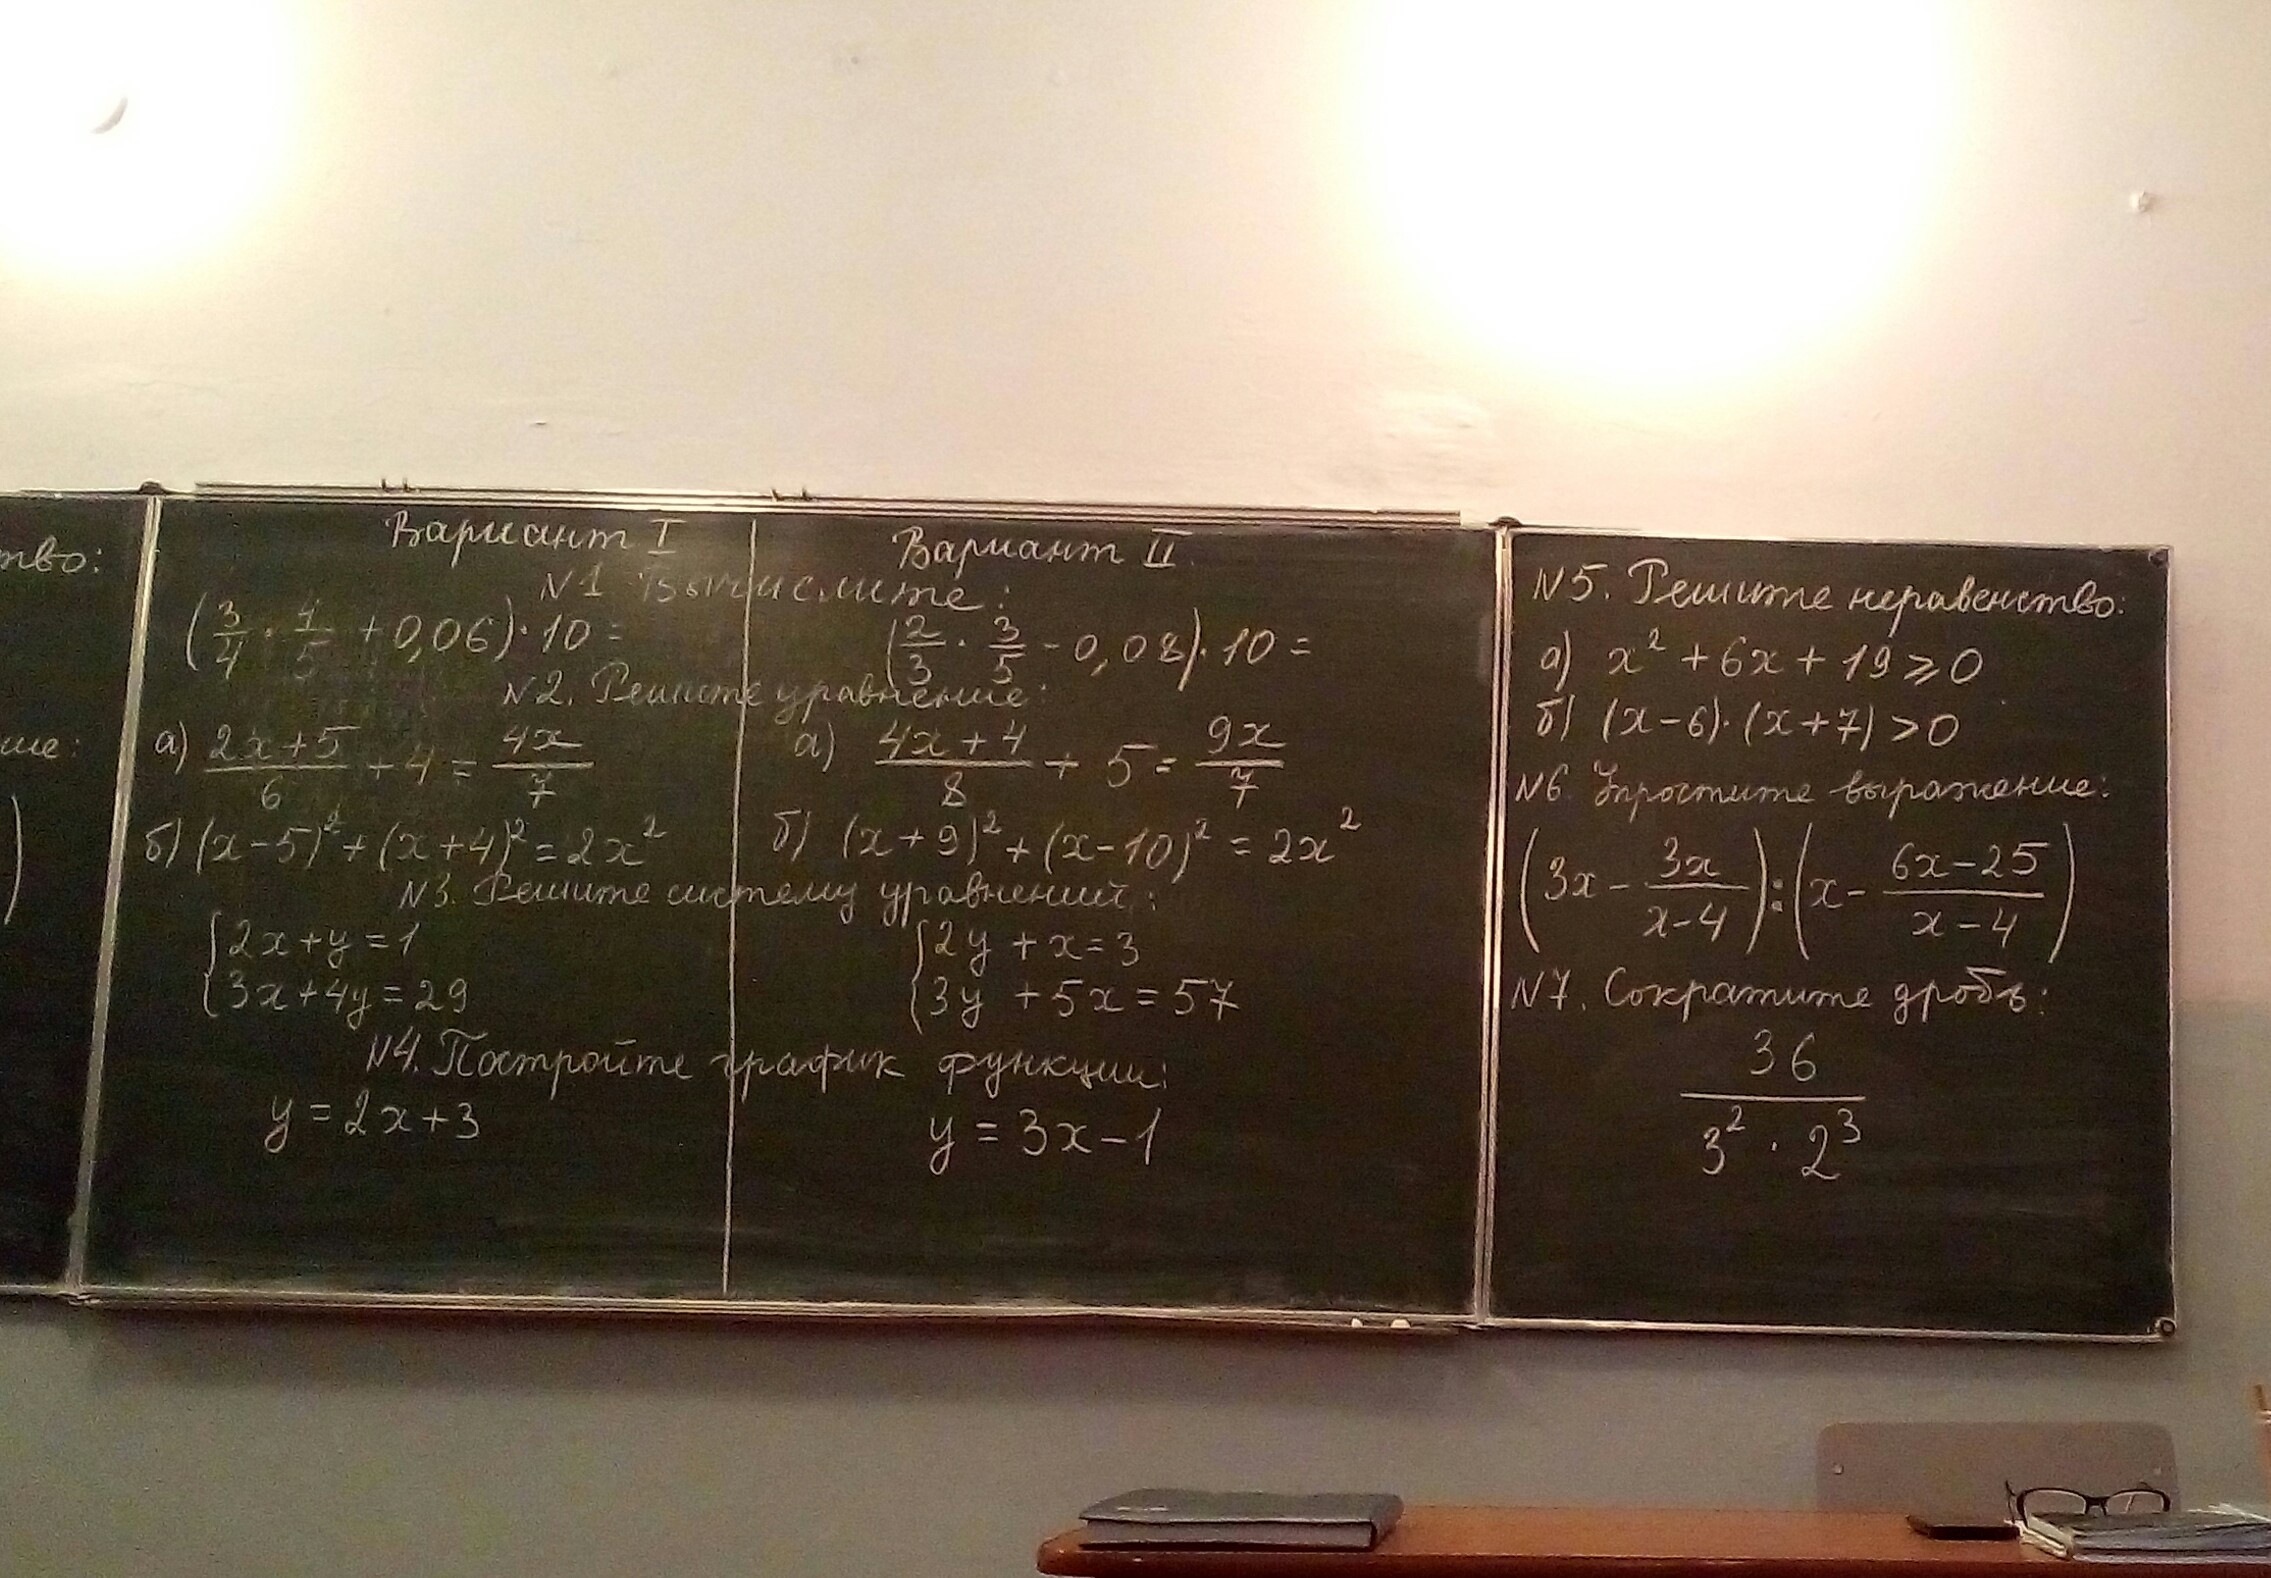 тво:
ие:
)
Вариант I
Вариант II
N1 Вычислите:
(3/4 · 4/5 + 0,06) · 10 =
(2/3 · 3/5 - 0,08) · 10 =
N2. Решите уравнение:
а) (2x+5)/6 + 4 = 4x/7
а) (4x+4)/8 + 5 = 9x/7
б) (x-5)² + (x+4)² = 2x²
б) (x+9)² + (x-10)² = 2x²
N3. Решите систему уравнений:
{2x+y=1
{3x+4y=29
{2y+x=3
{3y+5x=57
N4. Постройте график функции:
y=2x+3
y=3x-1
N5. Решите неравенство:
а) x²+6x+19⩾0
б) (x-6)·(x+7)>0
N6. Упростите выражение:
(3x - 3x/(x-4)) : (x - (6x-25)/(x-4))
N7. Сократите дробь:
36
3² · 2³